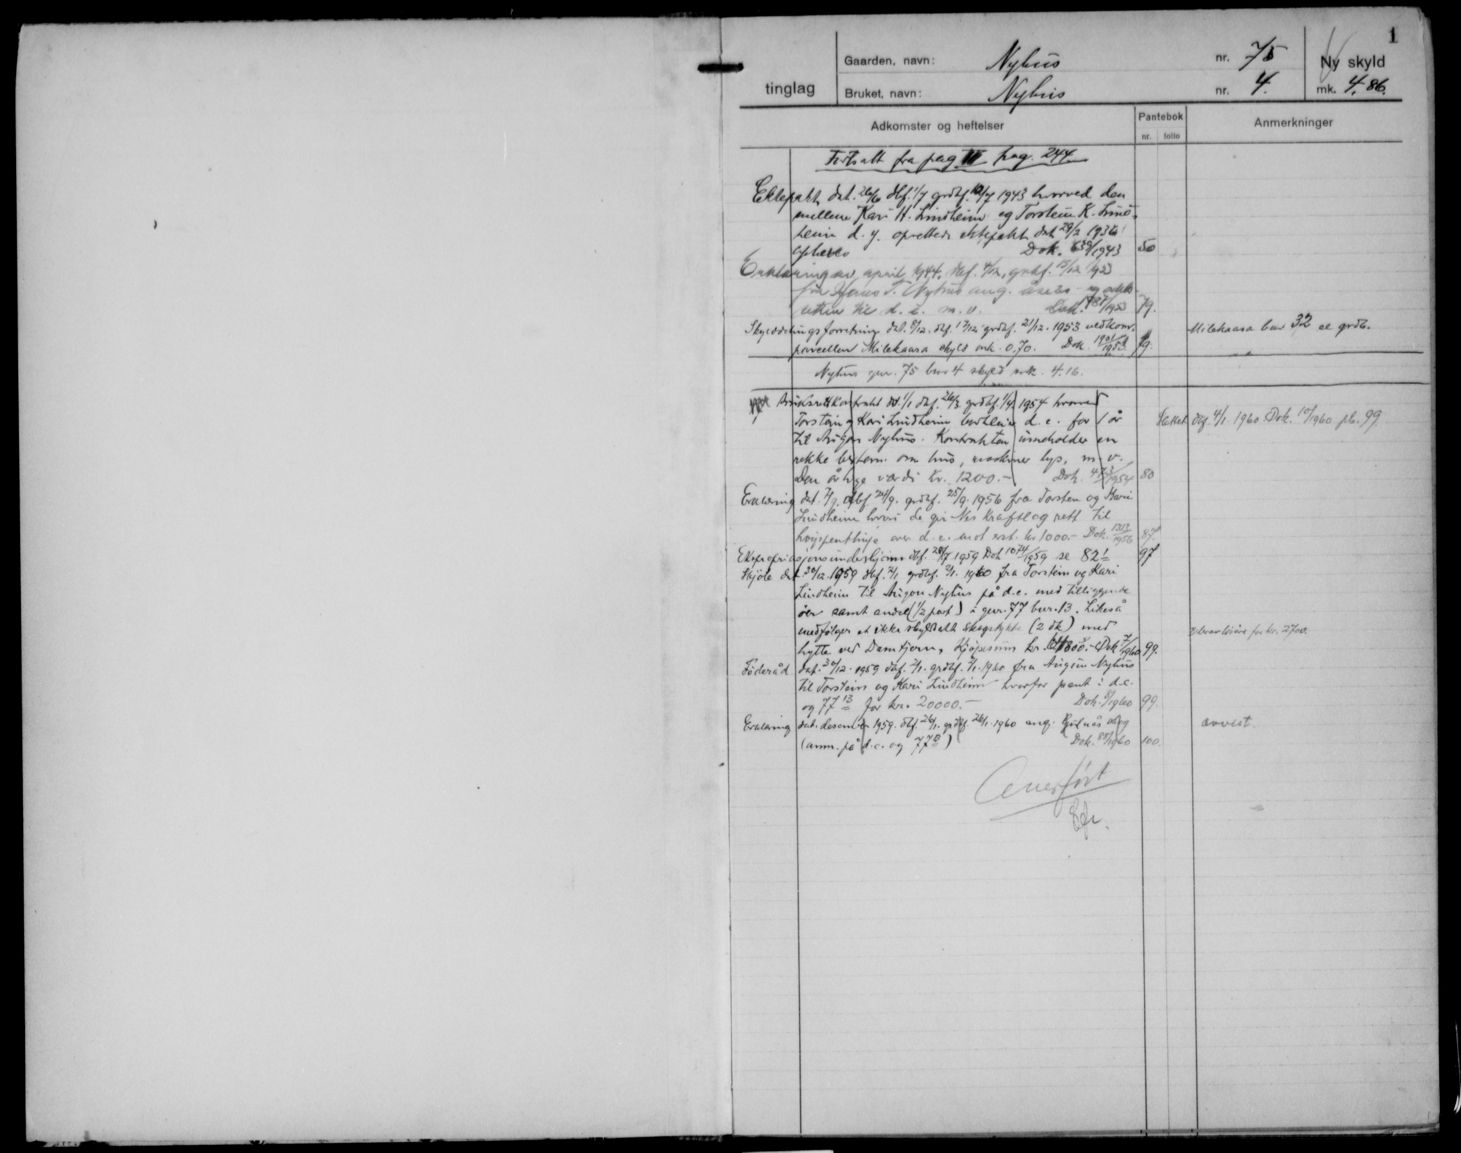 1
tinglag
Gaarden, navn: Nyhus nr. 75
Bruket, navn: Nyhus nr. 4.
Ny skyld
mk. 4.86.
Adkomster og heftelser
Pantebok
nr. folio
Anmerkninger
Fortsatt fra pag. 244
Ektepakt dat. 26/6 dbf. 1/7 grdbf. 10/7 1943 hvorved den
mellem Kari H. Lindheim og Torstein K. Lind-
heim d. y. oprettede ektepakt dat 29/2 1936
opheves Dok. 1943 50
Erklæring av april 1944, dbf. 4/12, grdbf. 15/12 1953
fra T. Nyhus ang. åsetes- og odels-
retten til d. e. m. v. Dok. 1953 79.
Skylddelingsforretning dat. 8/12. dbf. 17/12 grdbf. 21/12. 1953 vedkom.
parcellen Milekaasa skyld mk. 0.70. Dok. 1953. 79.
Milekaasa bnr 32 se grdb.
Nyhus gnr. 75 bnr 4 skyld mk. 4.16.
Bruksrettkontrakt dat. 1/1 dbf. 26/3 grdbf. 1/4 1954 hvorved
Torstein og Kari Lindheim bortleier d. e. for 1 år
til Trygve Nyhus. Kontrakten inneholder en
rekke bestem. om hus, maskiner lys, m. v.
Den årlige verdi kr. 1200.- Dok. 1954 80
Slettet dbf. 4/1 1960 Dok. 10/1960 pb. 99
Erklæring dat. 7/9. dbf. 24/9. grdbf. 25/9. 1956 fra Torsten og Kari
Lindheim hvori de gir Nes Kraftlag rett til
høyspentlinje over d. e. mot erst. kr. 1000.- Dok. 1313/1956 87
Ekspropriasjonsunderskjønn dbf. 28/7 1959 Dok. 1959 se 82/1 97
Skjøte dat. 30/12. 1959 dbf. 2/1. grdbf. 1960 fra Torstein og Kari
Lindheim til Nyhus på d.e. med tilliggende
samt andel (1/2 part) i gnr. 77 bnr. 13. Likeså
medfølger et ikke skyldsatt skogstykke (2 dk) med
hytte ved Damtjern. Kjøpesum kr. Dok. 1960 99.
Føderåd dat. 30/12. 1959 dbf. grdbf. 1960 fra Nyhus
til Torstein og Kari Lindheim hvorfor pant i d.e.
og 77 13 for kr. 20000.- Dok. 8/1960 99.
Erklæring dat. desember 1959. dbf. 26/1. grdbf. 26/1. 1960 ang.
(anm. på d.e. og 77) Dok. 1960 100.
Overført